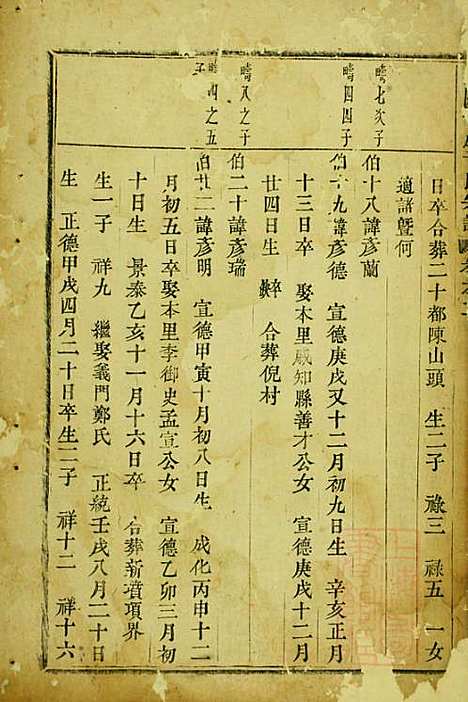 日卒合葬二十都陳山頭　生二子　祿三　祿五　一女
適諸暨何
疇七次子
伯十八諱彥蘭
疇四四子
伯十九諱彥德　宣德庚戌又十二月初九日生　辛亥正月
十三日卒　娶本里戚知縣善才公女　宣德庚戌十二月
廿四日生　卒　合葬倪村
疇八之子
伯二十諱彥瑞
疇四之五子
伯廿二諱彥明　宣德甲寅十月初八日生　成化丙申十二
月初五日卒娶本里李御史孟宣公女　宣德乙卯三月初
十日生　景泰乙亥十一月十六日卒　合葬新墳項界
生一子　祥九　繼娶義門鄭氏　正統壬戌八月二十日
生　正德甲戌四月二十日卒生二子　祥十二　祥十六